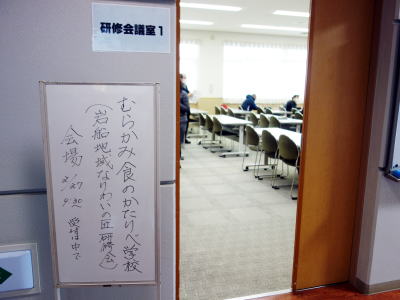 研修会議室1
むらかみ食のかたりべ学校
(岩船地域なりわいの匠研修会)
会場
2/27
9:30〜
受付は中で